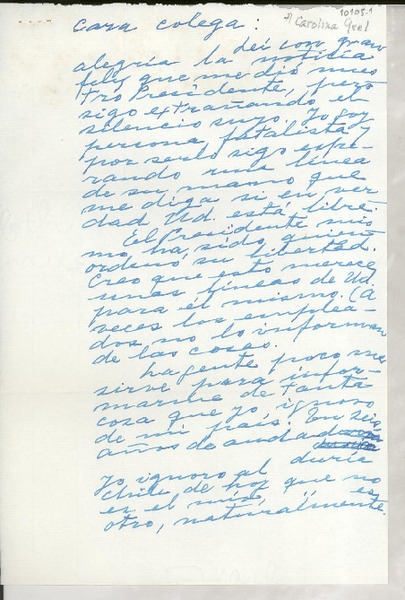 10105.1
a) Carolina Yxel
Cara colega:
Leí con gran
alegría la noticia
feliz que me dio nues
tro Presidente, pero
sigo extrañando el
silencio suyo. Yo soy
persona fatalista y
por serlo sigo espe-
rando una línea
de su mano que
me diga si en ver
dad Ud. está libre.
El Presidente mis
mo ha sido quien
ordenó su libertad.
Creo que esto merece
unas líneas de Ud.
para el mismo. (A
veces los emplea-
dos no lo informan
de las cosas.
La gente poco me
sirve para infor-
marme de tanta
cosa que yo ignoro
de mi país. En seis
años de
Yo ignoro al
Chile de hoy que no
es el mío, es
otro, naturalmente.